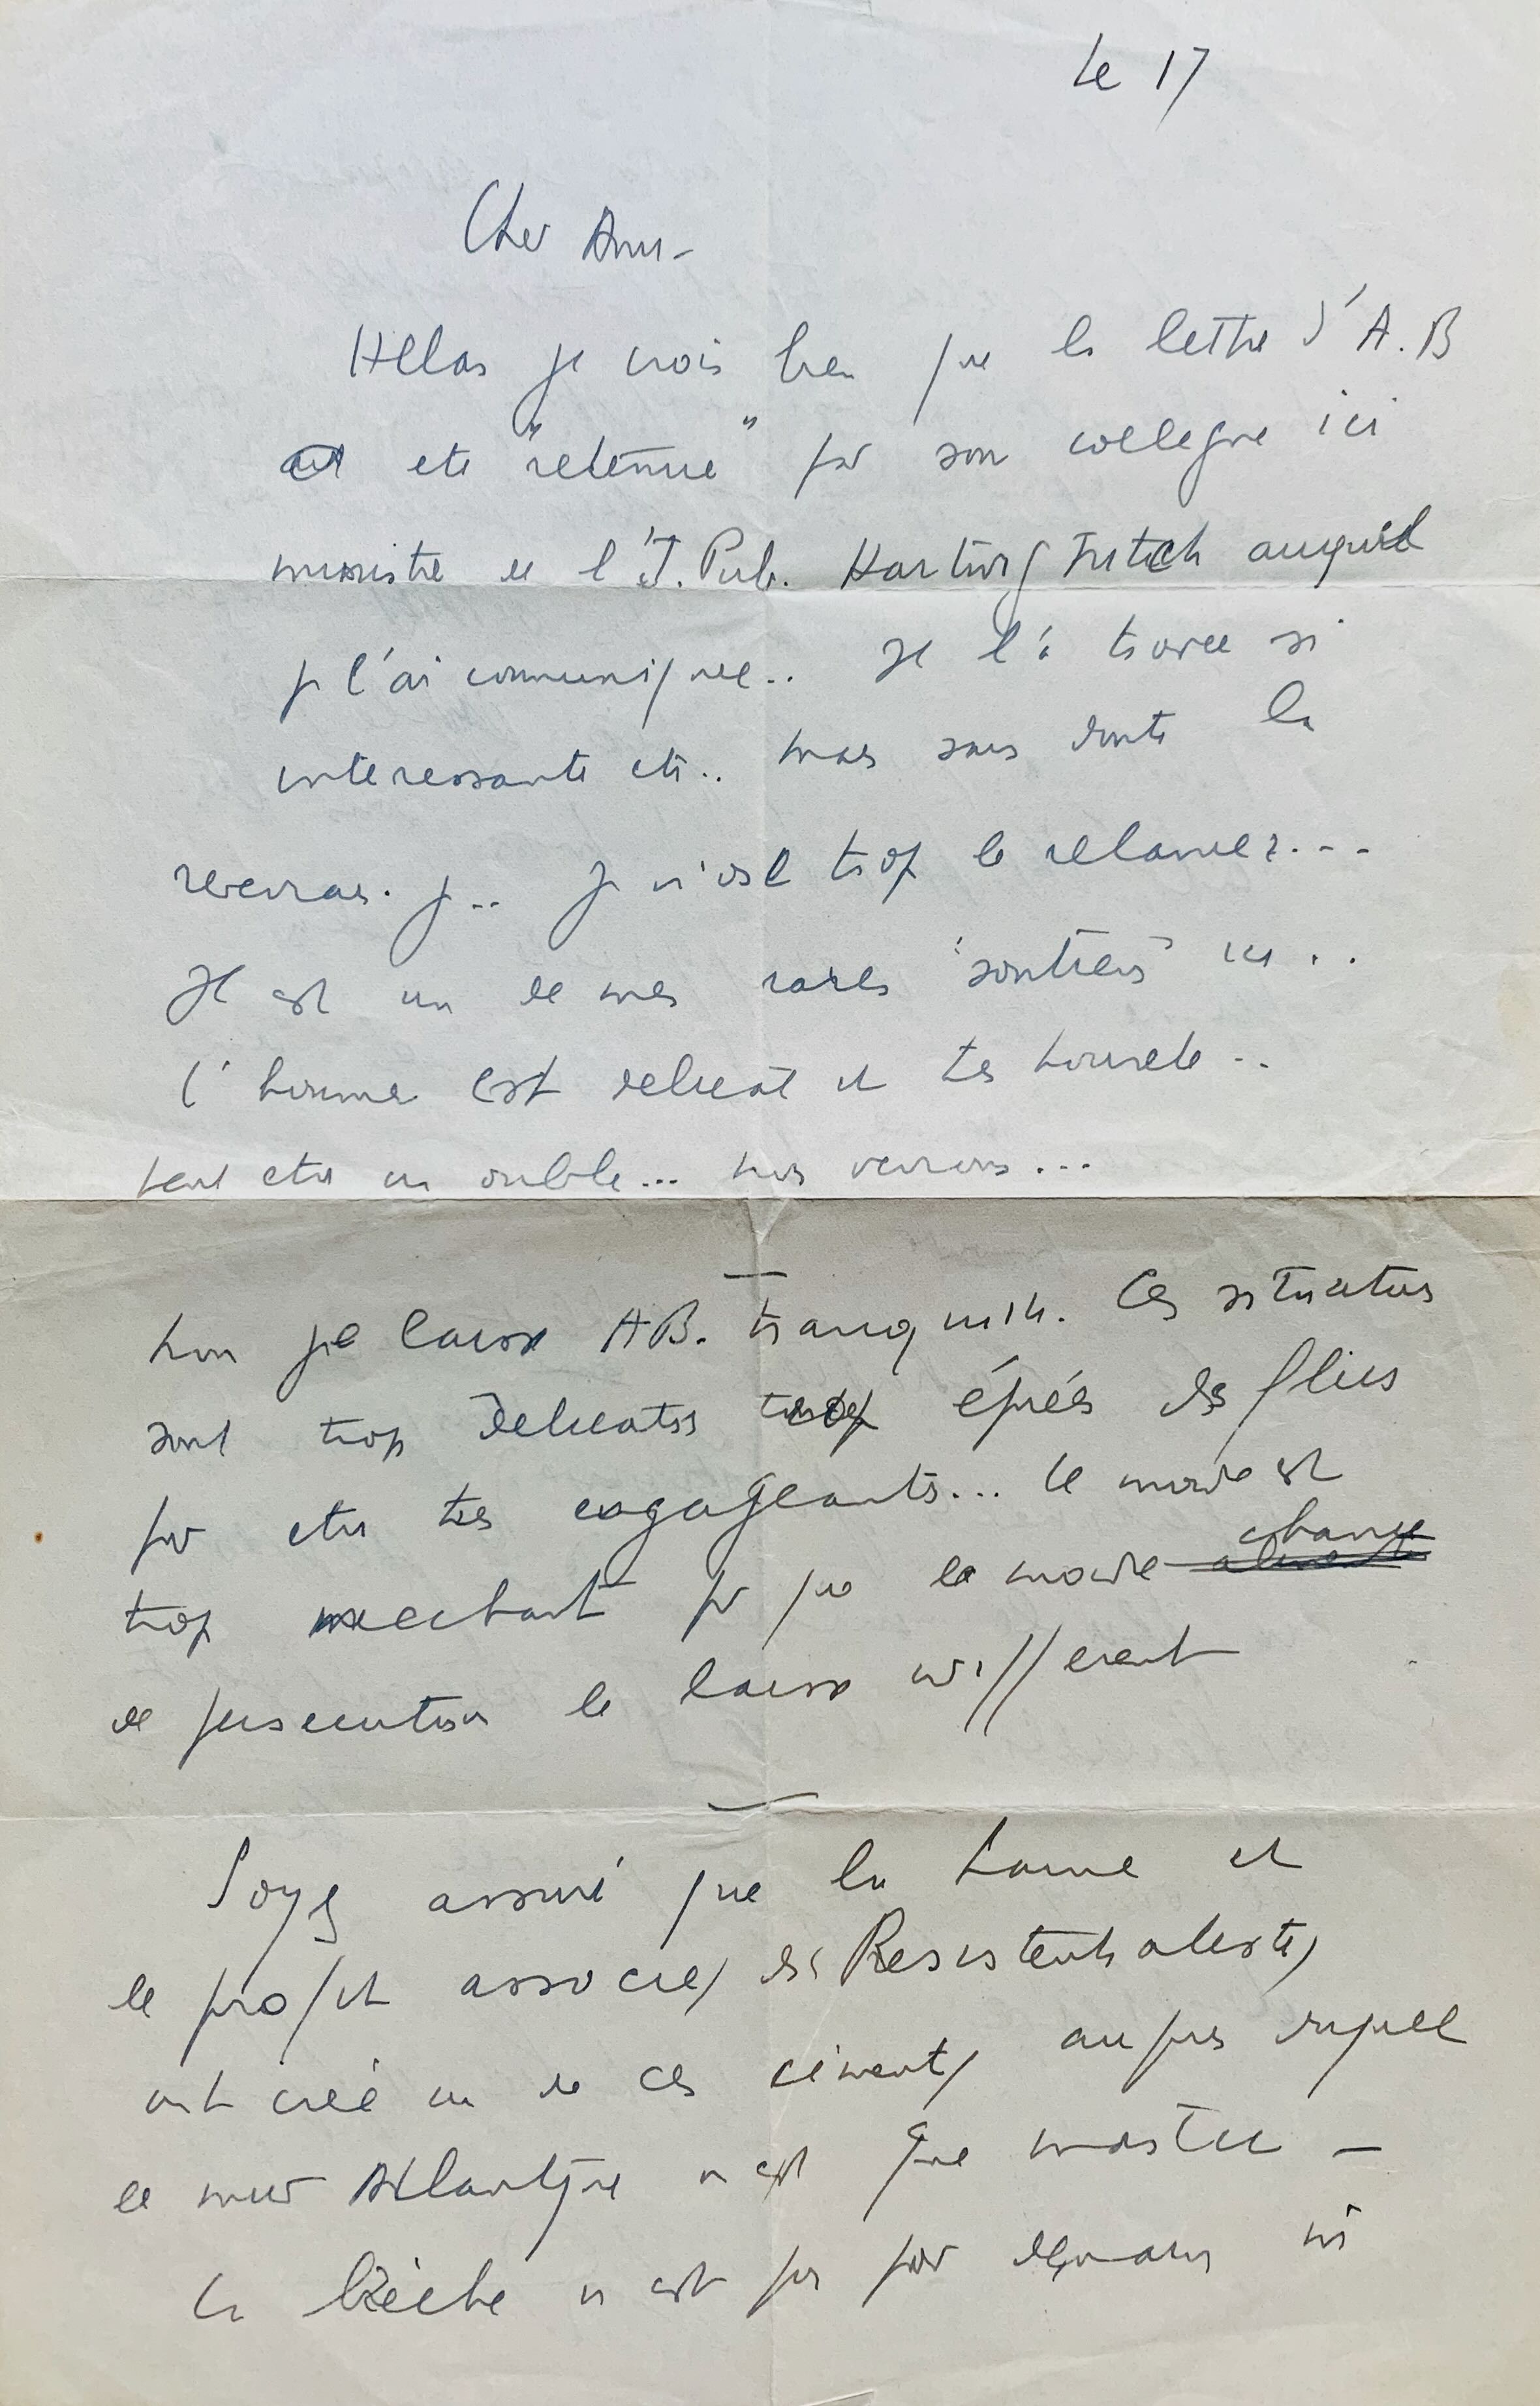 Le 17
Cher Ami -
Hélas je crois bien que la lettre d'A.B
ait eté "retenue" par son collegue ici
ministre de l'I. Pub. Hartvig Frisch auquel
je l'ai communiquée.. Il l'a trouvée si
interessante etc.. mais sans doute la
reverrai-je.. Je n'ose trop la reclamer...
Il est un de mes rares "soutiens" ici..
l'homme est delicat et tres honnete..
peut etre un oubli... nous verrons...
Non je laisse AB. tranquille. Ces situations
sont trop delicates trop épiées des flics
pour etre tres engageantes... Le monde est
trop mechant pour que le moindre chance
de persecution le laisse indifferent
Soyez assuré que la haine et
le profit associés des Resistentialistes
ont créé un de ces ciments auprès duquel
le mur Atlantique n'est que mastic -
La brèche n'est pas pour demain ni